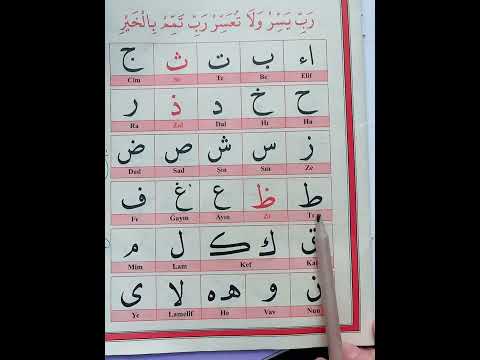 رَبِّ يَسِّرْ وَلَا تُعَسِّرْ رَبِّ تَمِّمْ بِالْخَيْرِ
اء ب ت ث ج
Elif Be Te Se Cim
ح خ د ذ ر
Ha Hı Dal Zel Ra
ز س ش ص ض
Ze Sin Şın Sad Dad
ط ظ ع غ ف
Zı Ayın Gayın Fe
ق ك ك ل م
Kef Lam Mim
ن و ه ه لا ى
Nun Vav He Lamelif Ye